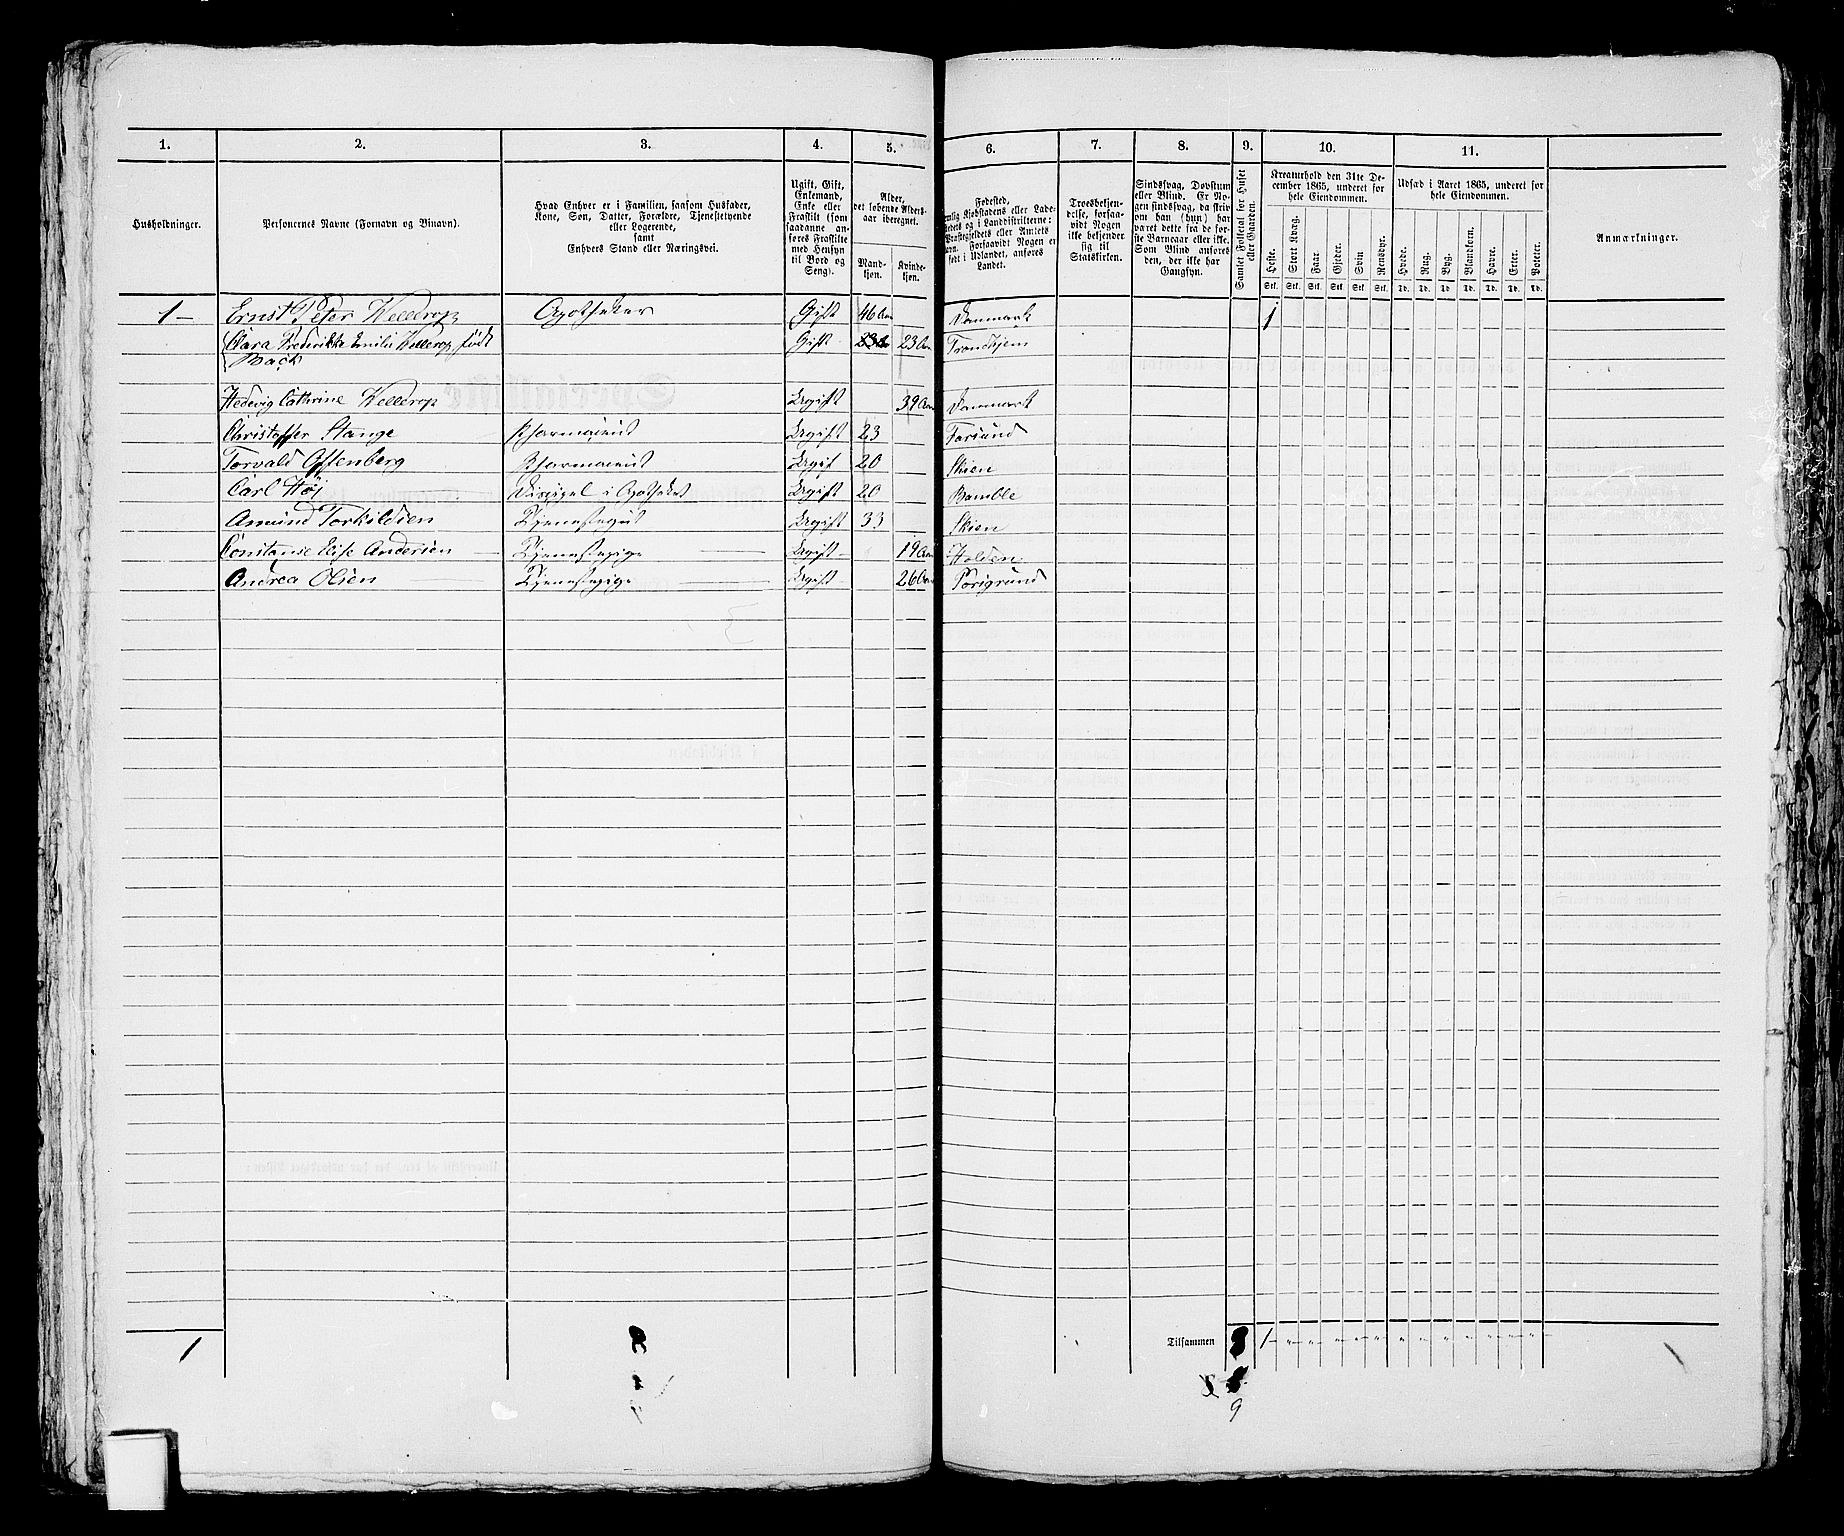 1. 2. 3. 4. 5. 6. 7. 8. 9. 10. 11.
Husholdninger.
Personernes Navne (Fornavn og Binavn).
Hvad Enhver er i Familien, saasom Husfader,
Kone, Søn, Datter, Forældre, Tjenestetyende
eller Logerende,
samt
Enhvers Stand eller Næringsvei.
Ugift, Gift,
Enkemand,
Enke eller
Fraskilt (som
saadanne an-
føres Fraskilte
med Hensyn
til Bord og
Seng).
Alder,
det løbende Alders-
aar iberegnet.
Mand-
kjøn.
Kvinde-
kjøn.
Fødested,
nemlig Kjøbstadens eller Lade-
stedets og i Landdistrikterne:
Præstegjeldets eller Amtets
Navn. Forsaavidt Nogen er
født i Udlandet, anføres
Landet.
Troesbekjen-
delse, forsaa-
vidt Nogen
ikke bekjender
sig til
Statskirken.
Sindssvag, Døvstum
eller Blind. Er No-
gen sindssvag, da skriv
om han (hun) har
været dette fra de før-
ste Barneaar eller ikke.
Som Blind anføres
den, der ikke har
Gangsyn.
Samlet Folketal for Huset
eller Gaarden.
Kreaturhold den 31te De-
cember 1865, underet for
hele Eiendommen.
Heste. Stort Kvæg. Faar. Gjeder. Svin Rensdyr.
Stk. Stk. Stk. Stk. Stk. Stk.
Udsæd i Aaret 1865, underet for
hele Eiendommen.
Hvede. Rug. Byg. Blandkorn. Havre. Erter. Poteter.
Td. Td. Td. Td. Td. Td. Td.
Anmærkninger.
1 — Ernst Peter Kellerop Apotheker Gift 46 Aar Danmark 1
Clara Frederikke Emilie Kellerop født Gift 23 Aar Trondhjem
Back
Hedevig Cathrine Kellerop Ugift 39 Aar Danmark
Christoffer Stange Pharmaceut Ugift 23 Farsund
Torvald Offenberg Pharmaceut Ugift 20 Skien
Carl Höj Discipel i Apotheket Ugift 20 Bamble
Amund Torkildsen Tjenestegut Ugift 33 Skien
Constanse Elise Andersen — Tjenestepige — Ugift 19 Aar Holden
Andrea Olsen — Tjenestepige — Ugift 26 Aar Porsgrund
1 8 Tilsammen 8 1 " " " " " " " " " " " "
9